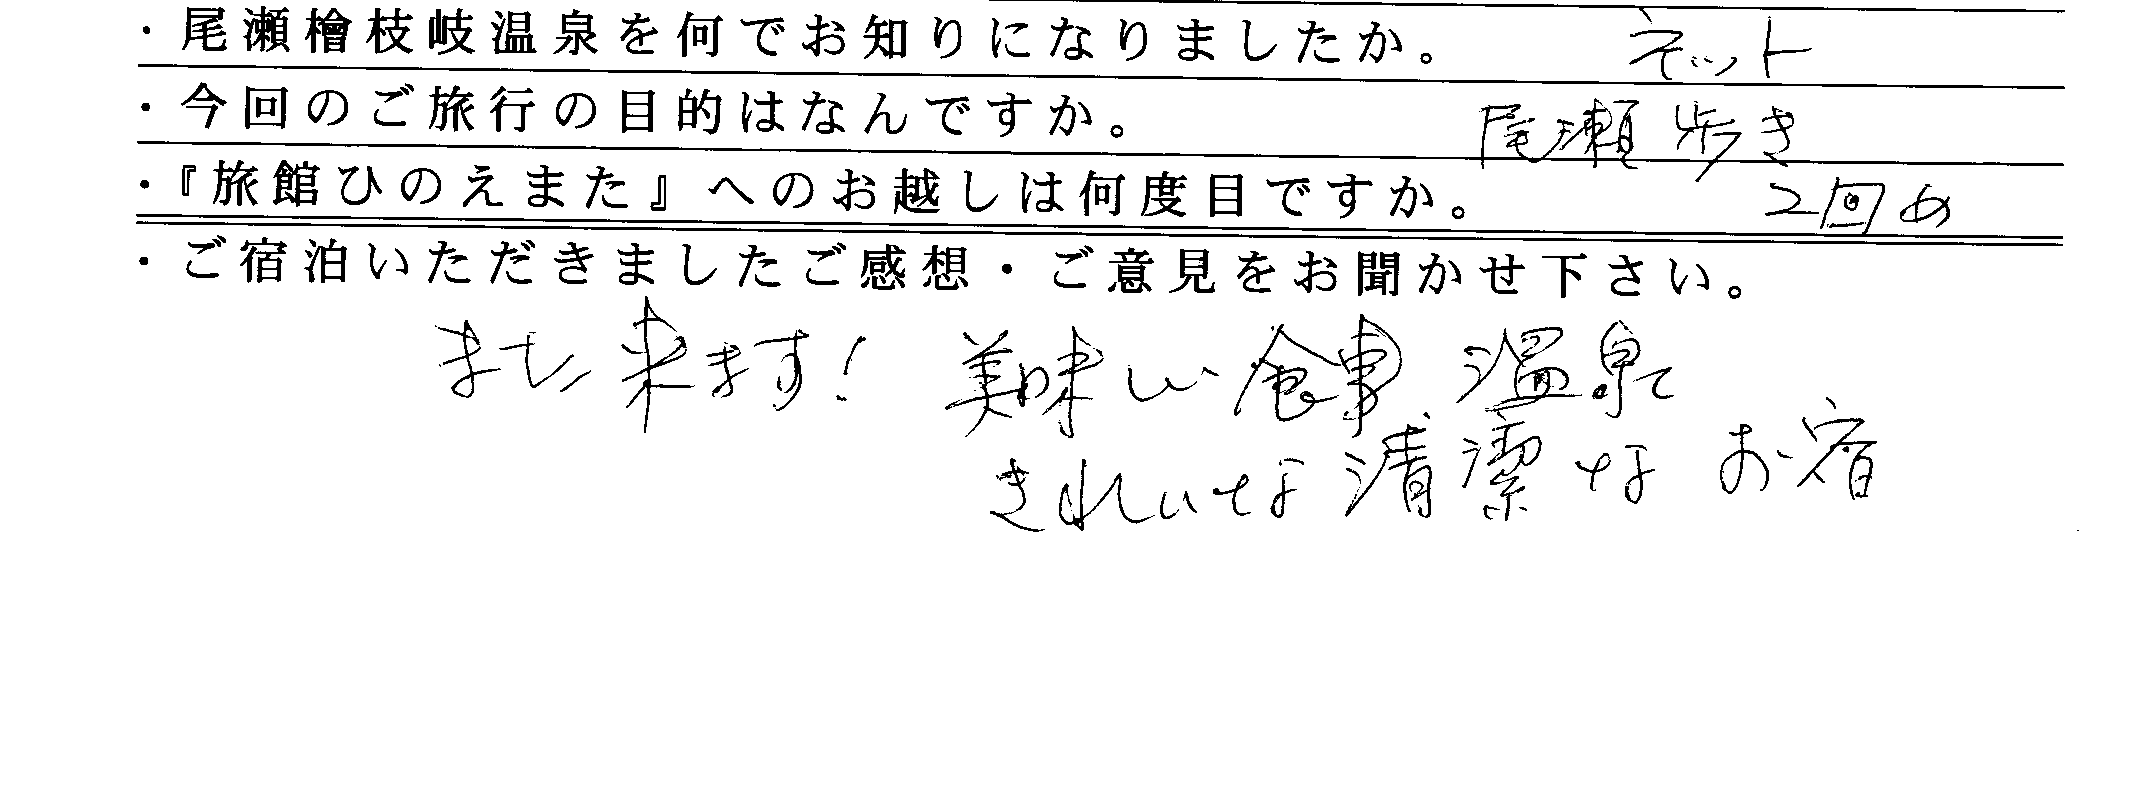 ・尾瀬檜枝岐温泉を何でお知りになりましたか。 ネット
・今回のご旅行の目的はなんですか。 尾瀬歩き
・『旅館ひのえまた』へのお越しは何度目ですか。 2回め
・ご宿泊いただきましたご感想・ご意見をお聞かせ下さい。
また来ます! 美味しい食事 温泉
きれいな清潔な お宿